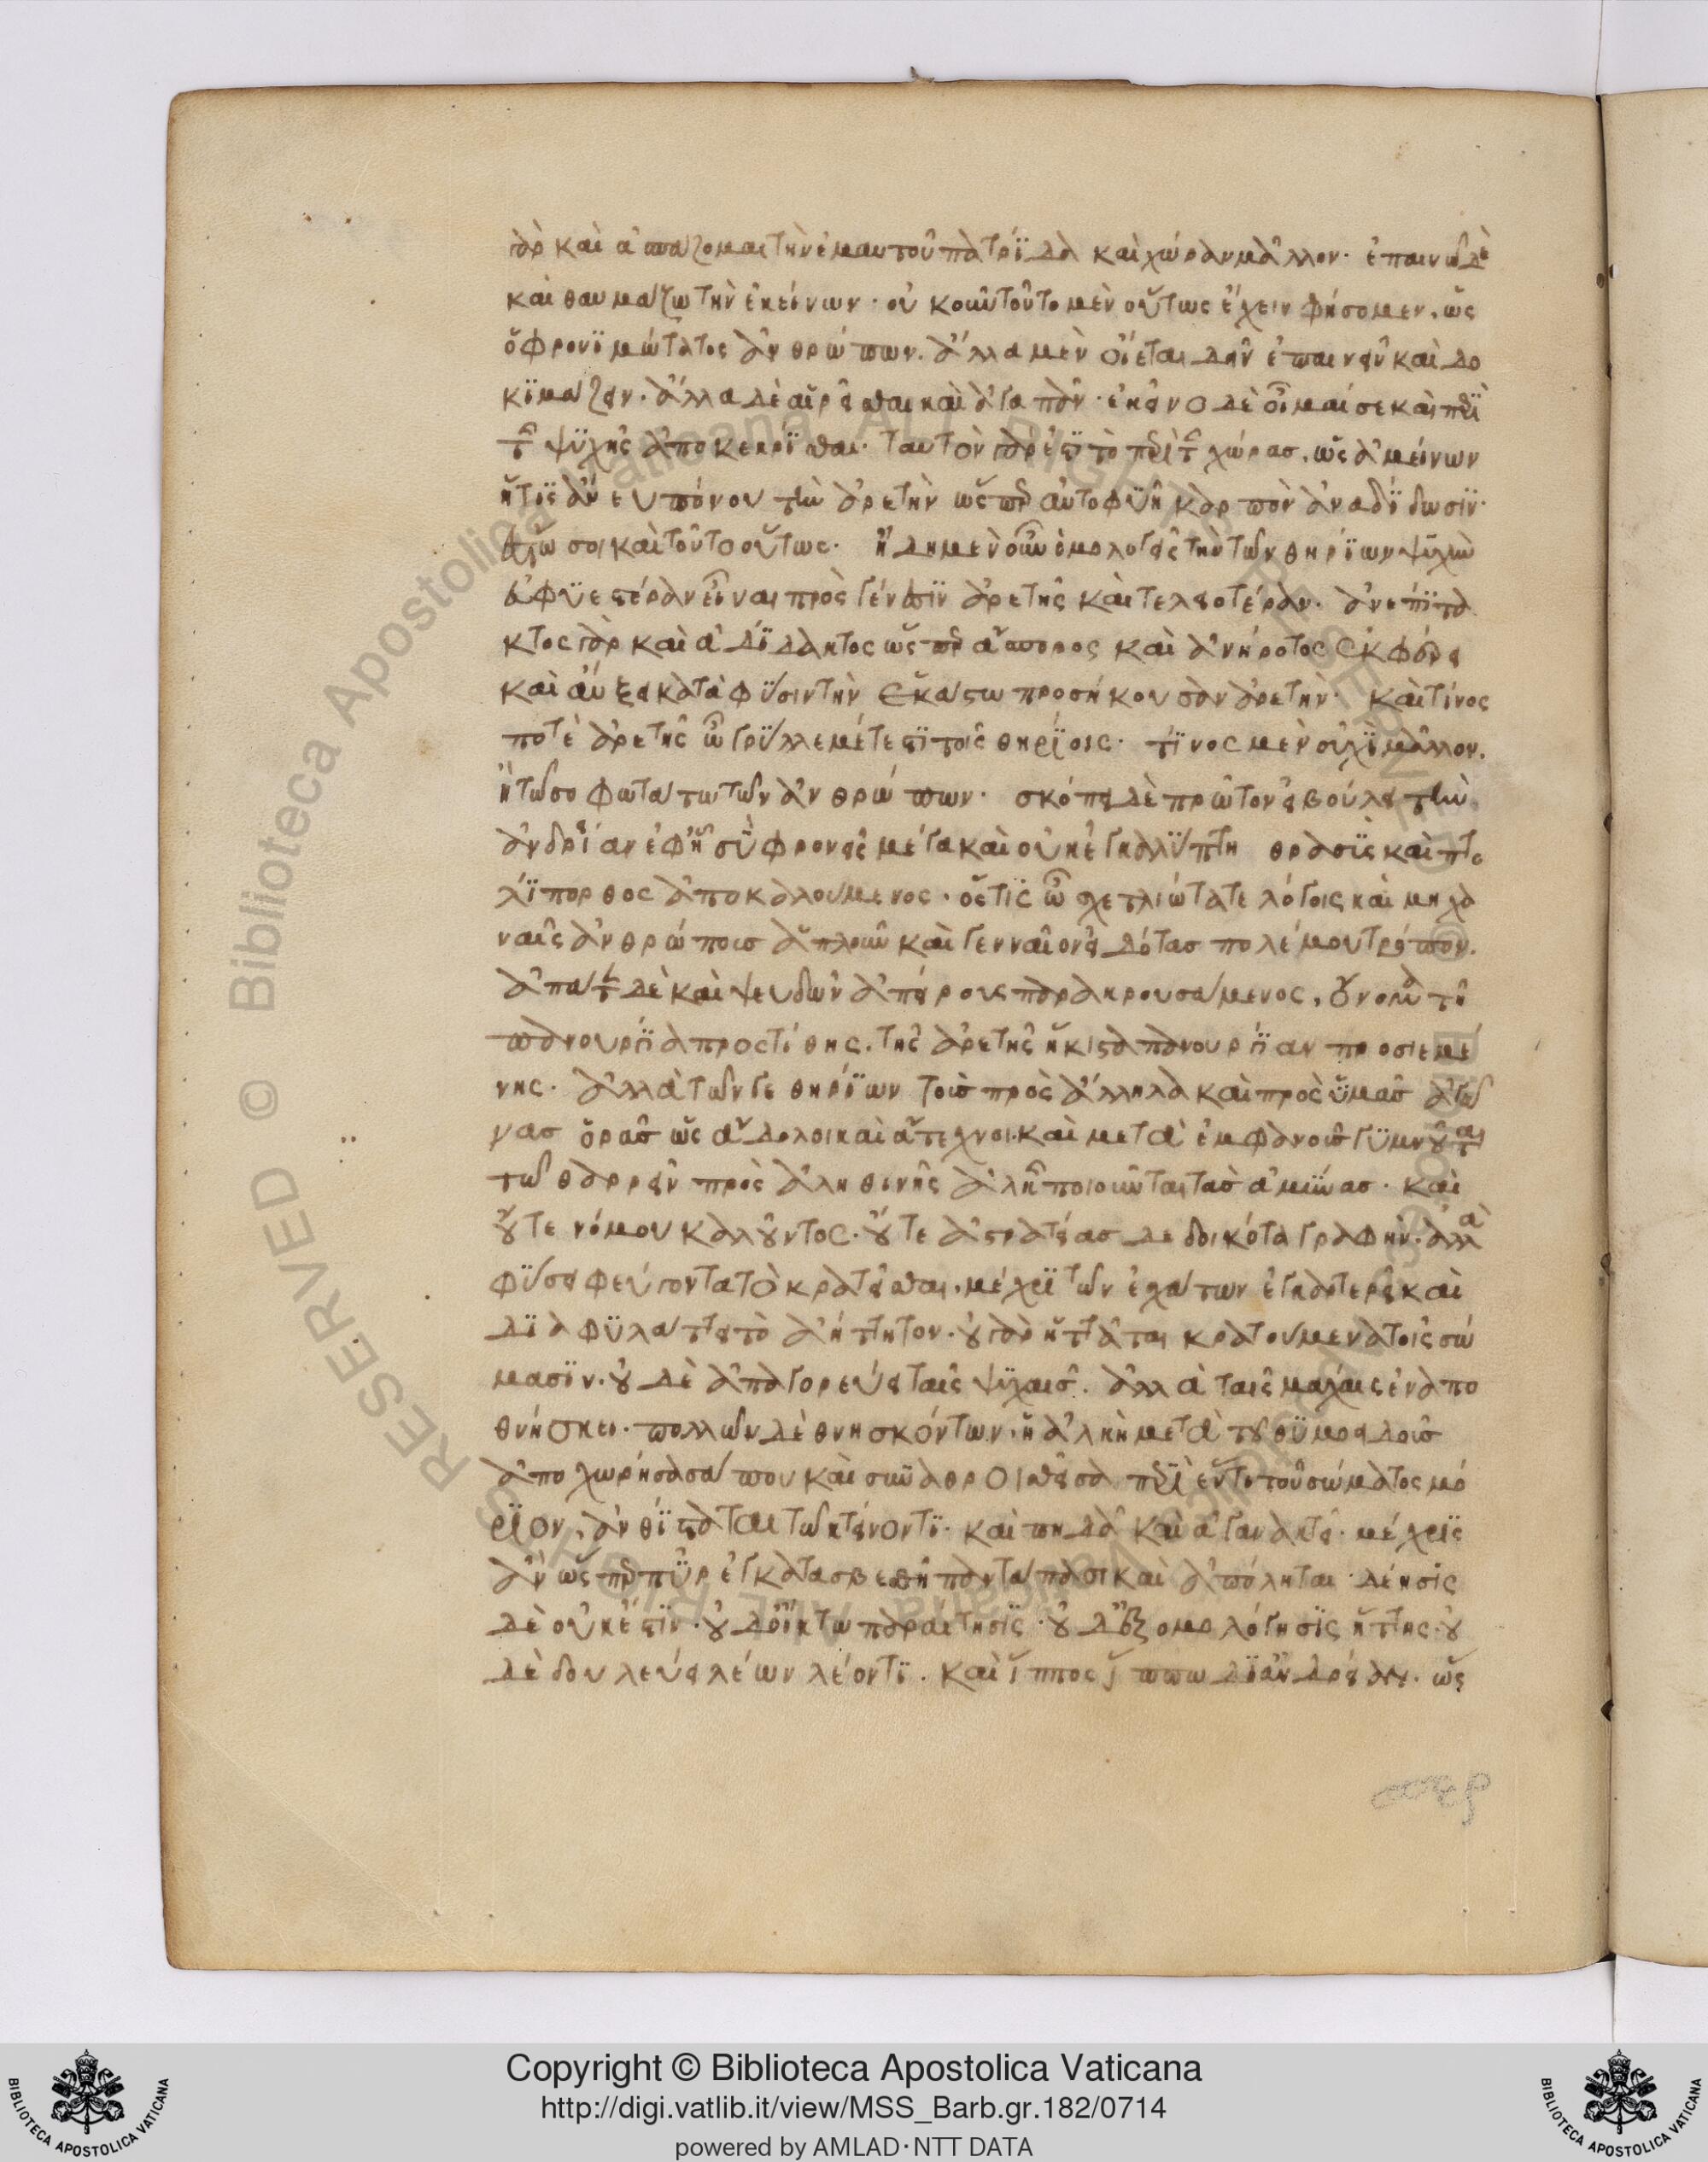 γὰρ καὶ ἀσπάζομαι τὴν ἐμαυτοῦ πατρίδα καὶ χώραν μᾶλλον· ἐπαινῶ δὲ
καὶ θαυμάζω τὴν ἐκείνων· οὐκοῦν τοῦτο μὲν οὕτως ἔχειν φήσομεν, ὡς
ὁ φρονιμώτατος ἀνθρώπων. ἄλλα μὲν οἴεται δεῖν ἐπαινεῖν καὶ δο
κιμάζειν. ἄλλα δὲ αἱρεῖσθαι καὶ ἀγαπᾶν· ἐκεῖνο δὲ οἶμαί σε καὶ περὶ
τῆς ψυχῆς ἀποκεκρίσθαι. ταυτὸν γάρ ἐστι τὸ περὶ τῆς χώρας, ὡς ἀμείνων
ἥτις ἄνευ πόνου τὴν ἀρετὴν ὥσπερ αὐτοφυῆ καρπὸν ἀναδίδωσιν·
ἔστω σοι καὶ τοῦτο οὕτως. ἤδη μὲν οὖν ὁμολογεῖς τὴν τῶν θηρίων ψυχὴν
εὐφυεστέραν εἶναι πρὸς γένεσιν ἀρετῆς καὶ τελειοτέραν. ἀνεπίτα
κτος γὰρ καὶ ἀδίδακτος ὥσπερ ἄσπορος καὶ ἀνήροτος ἐκφέρει
καὶ αὔξει κατὰ φύσιν τὴν ἑκάστω προσήκουσαν ἀρετήν. καὶ τίνος
ποτὲ ἀρετῆς ὦ Γρύλλε μέτεστι τοῖς θηρίοις· τίνος μὲν οὐχὶ μᾶλλον.
ἢ τῶ σοφωτάτω τῶν ἀνθρώπων· σκόπει δὲ πρῶτον εἰ βούλει τὴν
ἀνδρείαν ἐφ' ἧ σὺ φρονεῖς μέγα καὶ οὐκ ἐγκαλύπτη θρασὺς καὶ πτο
λίπορθος ἀποκαλούμενος· ὅστις ὦ σχετλιώτατε λόγοις καὶ μηχα
ναῖς ἀνθρώποις ἁπλοῦν καὶ γενναῖον εἰδότας πολέμου τρόπον.
ἀπάτης δὲ καὶ ψευδῶν ἀπείρους παρακρουσάμενος, ὄνομα τῆ
πανουργία προστίθης. τῆς ἀρετῆς ἥκιστα πανουργίαν προσιεμέ
νης. ἀλλὰ τῶν γε θηρίων τοὺς πρὸς ἄλληλα καὶ πρὸς ὑμᾶς ἀγῶ
νας ὁρᾶς ὡς ἄδολοι καὶ ἄτεχνοι· καὶ μετὰ ἐμφανοῦς γυμνοῦ τε
τῶ θαρρεῖν πρὸς ἀληθινῆς ἀλκῆς ποιοῦνται τὰς ἀμύνας. καὶ
οὔτε νόμου καλοῦντος. οὔτε ἀστρατείας δεδοικότα γραφήν. ἀλλὰ
φύσει φεύγοντα τὸ κρατεῖσθαι, μέχρι τῶν ἐσχάτων ἐγκαρτερεῖ καὶ
διαφυλάττει τὸ ἀήττητον. οὐ γὰρ ἡττᾶται κρατούμενα τοῖς σώ
μασιν. οὐδὲ ἀπαγορεύει ταῖς ψυχαῖς. ἀλλὰ ταῖς μάχαις ἐναπο
θνήσκει. πολλῶν δὲ θνησκόντων. ἡ ἀλκὴ μετὰ τοῦ θυμοειδοῦς
ἀποχωρήσασά που καὶ συναθροισθεῖσα περὶ ἕν τι τοῦ σώματος μό
ριον, ἀνθίσταται τῶ κτείνοντι. καὶ πηδᾶ καὶ ἀγανακτεῖ. μέχρις
ἂν ὥσπερ πῦρ ἐγκατασβεσθῆ παντάπασι καὶ ἀπόληται· δέησις
δὲ οὐκ ἔστιν. οὐδ' οἴκτω παραίτησις. οὐδ' ἐξομολόγησις ἥττης. οὐ
δὲ δουλεύει λέων λέοντι. καὶ ἵππος ἵππω δι' ἀνανδρείαν. ὡς
περ